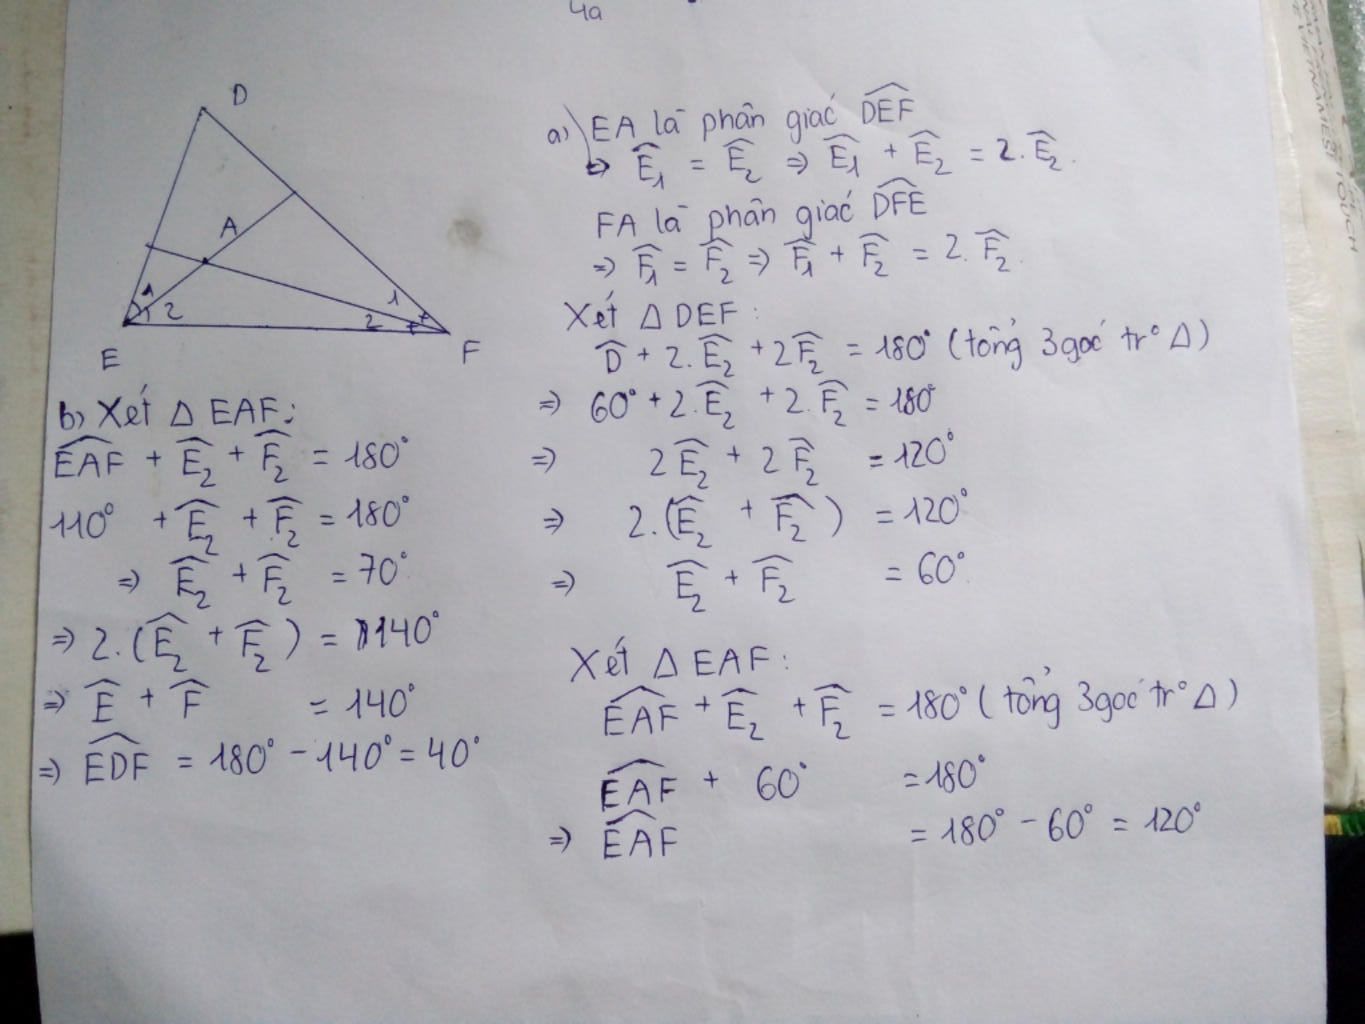 4a
D
A
1
2
1
2
E
F
a) EA là phân giác \widehat{DEF}
=> \widehat{E}_1 = \widehat{E}_2 => \widehat{E}_1 + \widehat{E}_2 = 2.\widehat{E}_2.
FA là phân giác \widehat{DFE}
=> \widehat{F}_1 = \widehat{F}_2 => \widehat{F}_1 + \widehat{F}_2 = 2.\widehat{F}_2.
Xét Δ DEF:
\widehat{D} + 2.\widehat{E}_2 + 2\widehat{F}_2 = 180° (tổng 3 góc tr° Δ)
=> 60° + 2.\widehat{E}_2 + 2.\widehat{F}_2 = 180°
=> 2\widehat{E}_2 + 2\widehat{F}_2 = 120°
=> 2.(\widehat{E}_2 + \widehat{F}_2) = 120°
=> \widehat{E}_2 + \widehat{F}_2 = 60°
Xét Δ EAF:
\widehat{EAF} + \widehat{E}_2 + \widehat{F}_2 = 180° (tổng 3 góc tr° Δ)
\widehat{EAF} + 60° = 180°
=> \widehat{EAF} = 180° - 60° = 120°
b) Xét Δ EAF:
\widehat{EAF} + \widehat{E}_2 + \widehat{F}_2 = 180°
110° + \widehat{E}_2 + \widehat{F}_2 = 180°
=> \widehat{E}_2 + \widehat{F}_2 = 70°
=> 2.(\widehat{E}_2 + \widehat{F}_2) = 140°
=> \widehat{E} + \widehat{F} = 140°
=> \widehat{EDF} = 180° - 140° = 40°